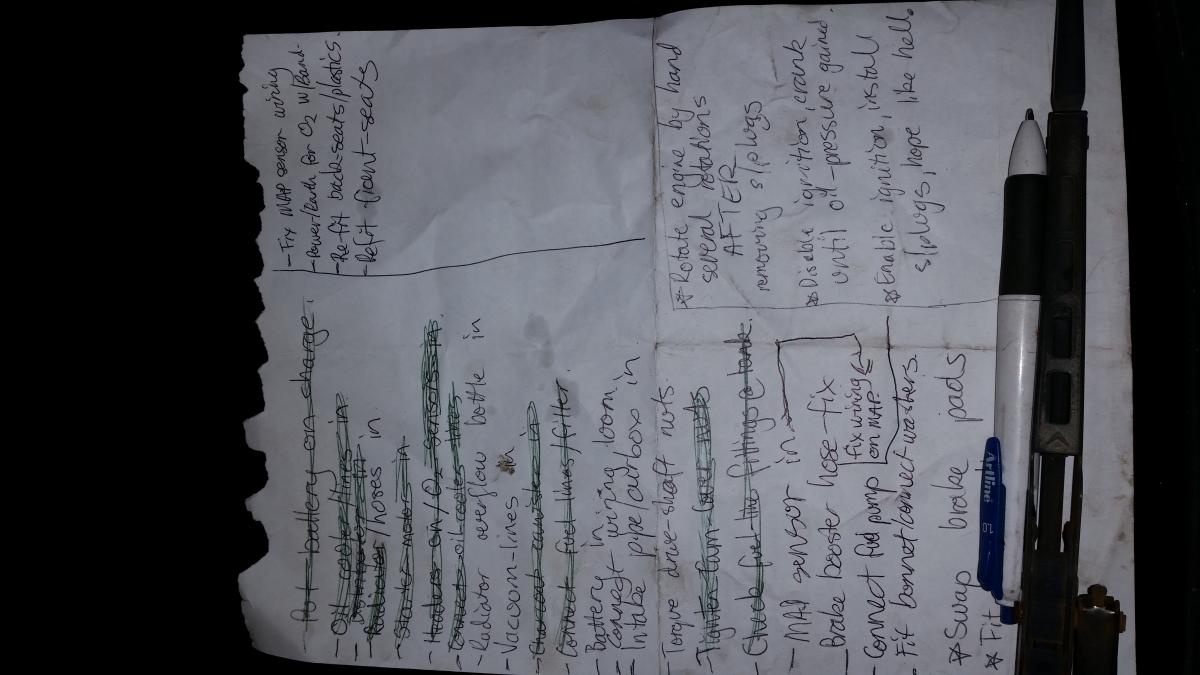 - Put battery on charge.
- Oil cooler/lines in
- Radiator/hoses in
- Starter motor in
- Headers on/O2 sensors in.
- Connect oil-cooler lines
- Radiator overflow bottle in
- Vacuum-lines in
- Charcoal canister in
- Connect fuel lines/filter.
- Battery in
- Connect wiring loom
- Intake pipe/airbox in
- Torque drive-shaft nuts.
- Tighten cam-cover nuts
- Check fuel-line fittings @ tank.
- MAP sensor in
- Brake booster hose-fix
- Connect fuel pump
fix wiring
on MAP.
- Fit bonnet/connect washers.
* Swap brake pads
* Fit
- Fix MAP sensor wiring
- Power/Earth for O2 w/Band.
- Re-fit back-seats/plastics.
- Refit front-seats
* Rotate engine by hand
several rotations
AFTER
removing s/plugs
* Disable ignition, crank
until oil-pressure gained.
* Enable ignition, install
s/plugs, hope like hell.
Artline